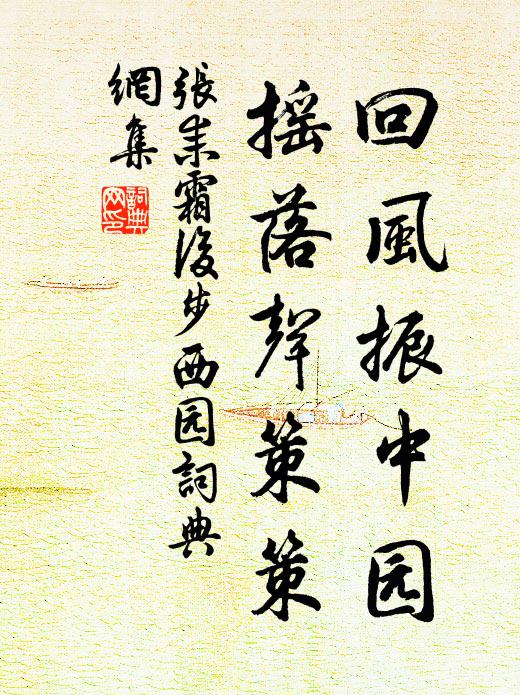 回風振中园
摇落聲策策
張耒霜後步西园詞典
網集
詞典
网印